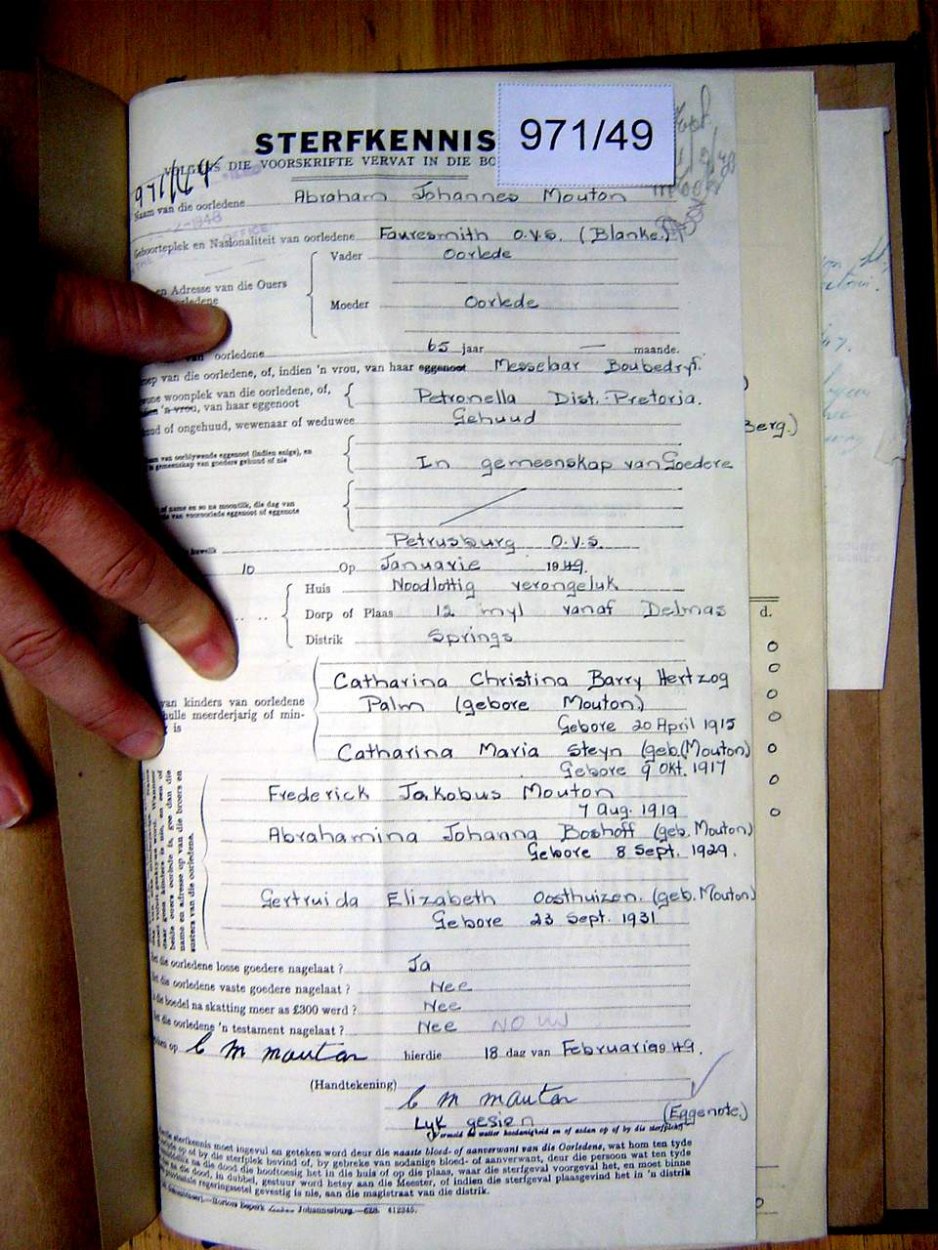 STERFKENNIS
971/49
VOLGENS DIE VOORSKRIFTE VERVAT IN DIE
971/44
Naam van die oorledene Abraham Johannes Mouton
Geboorteplek en Nasionaliteit van oorledene Fauresmith O.V.S. (Blanke.)
Vader Oorlede
en Adresse van die Ouers
oorledene
Moeder Oorlede
van oorledene 65 jaar — maande.
van die oorledene, of, indien 'n vrou, van haar eggenoot Messelaar Boubedryf.
woonplek van die oorledene, of,
indien 'n vrou, van haar eggenoot
Petronella Dist. Pretoria.
of ongehuud, wewenaar of weduwee Gehuud
van oorblywende eggenoot (indien enige), en
in gemeenskap van goedere gehuud of nie
In gemeenskap van Goedere
name en so na moontlik, die dag van
van vooroorlede eggenoot of eggenote
Petrusburg O.V.S.
10 Op Januarie 1949.
Huis Noodlottig verongeluk
Dorp of Plaas 12 myl vanaf Delmas
Distrik Springs
Catharina Christina Barry Hertzog
van kinders van oorledene
Palm (gebore Mouton)
hulle meerderjarig of min-
is
Gebore 20 April 1915
Catharina Maria Steyn (geb.(Mouton)
Gebore 9 Okt. 1917
Frederick Jakobus Mouton
7 Aug. 1919
Abrahamina Johanna Boshoff (geb. Mouton)
Gebore 8 Sept. 1929.
Gertruida Elizabeth Oosthuizen. (geb. Mouton)
Gebore 23 Sept. 1931
daar geen kinders is nie, en een of
beide ouers oorlede is, gee dan die
name en adresse op van die broers en
susters van die oorledene.
die oorledene losse goedere nagelaat? Ja
die oorledene vaste goedere nagelaat? Nee
die boedel na skatting meer as £300 werd? Nee
die oorledene 'n testament nagelaat? Nee NO W
op C M Mouton hierdie 18 dag van Februarie 1949.
(Handtekening)
C M Mouton
Lyk gesien (Eggenote.)
sterfkennis moet ingevul en geteken word deur die naaste bloed- of aanverwant van die Oorledene, wat hom ten tyde
op of by die sterfplek bevind of, by gebreke van sodanige bloed- of aanverwant, deur die persoon wat ten tyde
na die dood die hooftoesig het in die huis of op die plaas, waar die sterfgeval voorgeval het, en moet binne
na die dood, in dubbel, gestuur word hetsy aan die Meester, of indien die sterfgeval plaasgevind het in 'n distrik
regeringsetel gevestig is nie, aan die magistraat van die distrik.
Horters Beperk Johannesburg.—628. 412345.
Berg.)
d.
0
0
0
0
0
0